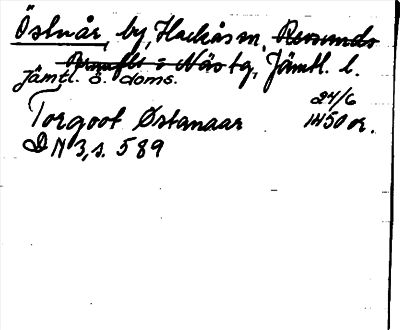 Östnår, by, Hackås sn, Revsunds
Revsunds o Näs tg, Jämtl. l.
Jämtl. ö. doms.
24/6
Torgoot Østanaar 1450 or.
DN 3, s. 589